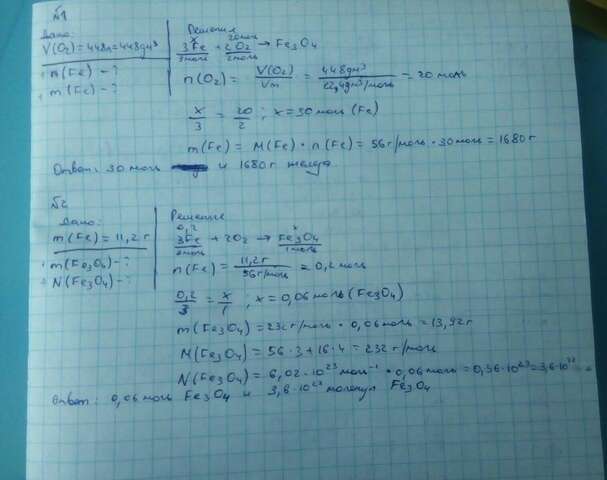 №1
Дано:
V(O₂)=448л=448дм³
n(Fe) - ?
m(Fe) - ?
Решение
x 20моль
3Fe + 2O₂ → Fe₃O₄
3моль 2моль
n(O₂) = V(O₂)/Vm = 448дм³/22,4дм³/моль = 20 моль
x/3 = 20/2 ; x = 30 моль (Fe)
m(Fe) = M(Fe) · n(Fe) = 56 г/моль · 30 моль = 1680 г
Ответ: 30 моль и 1680 г железа
№2
Дано:
m(Fe) = 11,2 г
m(Fe₃O₄) - ?
N(Fe₃O₄) - ?
Решение
0,2 x
3Fe + 2O₂ → Fe₃O₄
3моль 1моль
n(Fe) = 11,2 г/56 г/моль = 0,2 моль
0,2/3 = x/1 , x = 0,06 моль (Fe₃O₄)
m(Fe₃O₄) = 232 г/моль · 0,06 моль = 13,92 г
M(Fe₃O₄) = 56·3+16·4 = 232 г/моль
N(Fe₃O₄) = 6,02·10²³ моль⁻¹ · 0,06 моль = 0,36·10²³ = 3,6·10²²
Ответ: 0,06 моль Fe₃O₄ и 3,6·10²² молекул Fe₃O₄